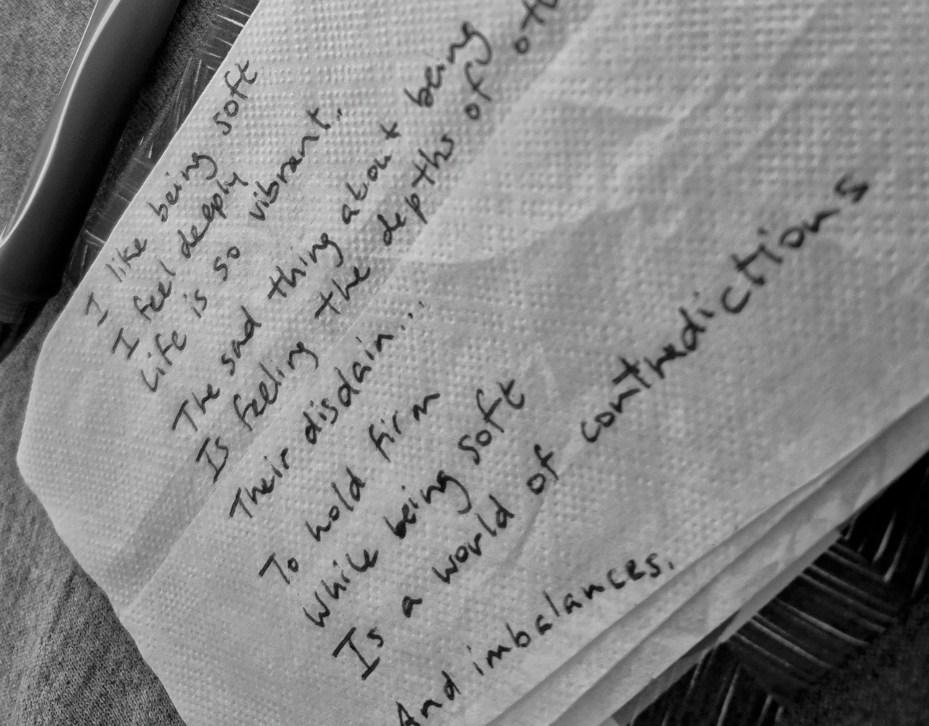 I like being soft
I feel deeply
Life is so vibrant..
The sad thing about being
Is feeling the depths of
Their disdain...
To hold firm
While being soft
Is a world of contradictions
And imbalances.